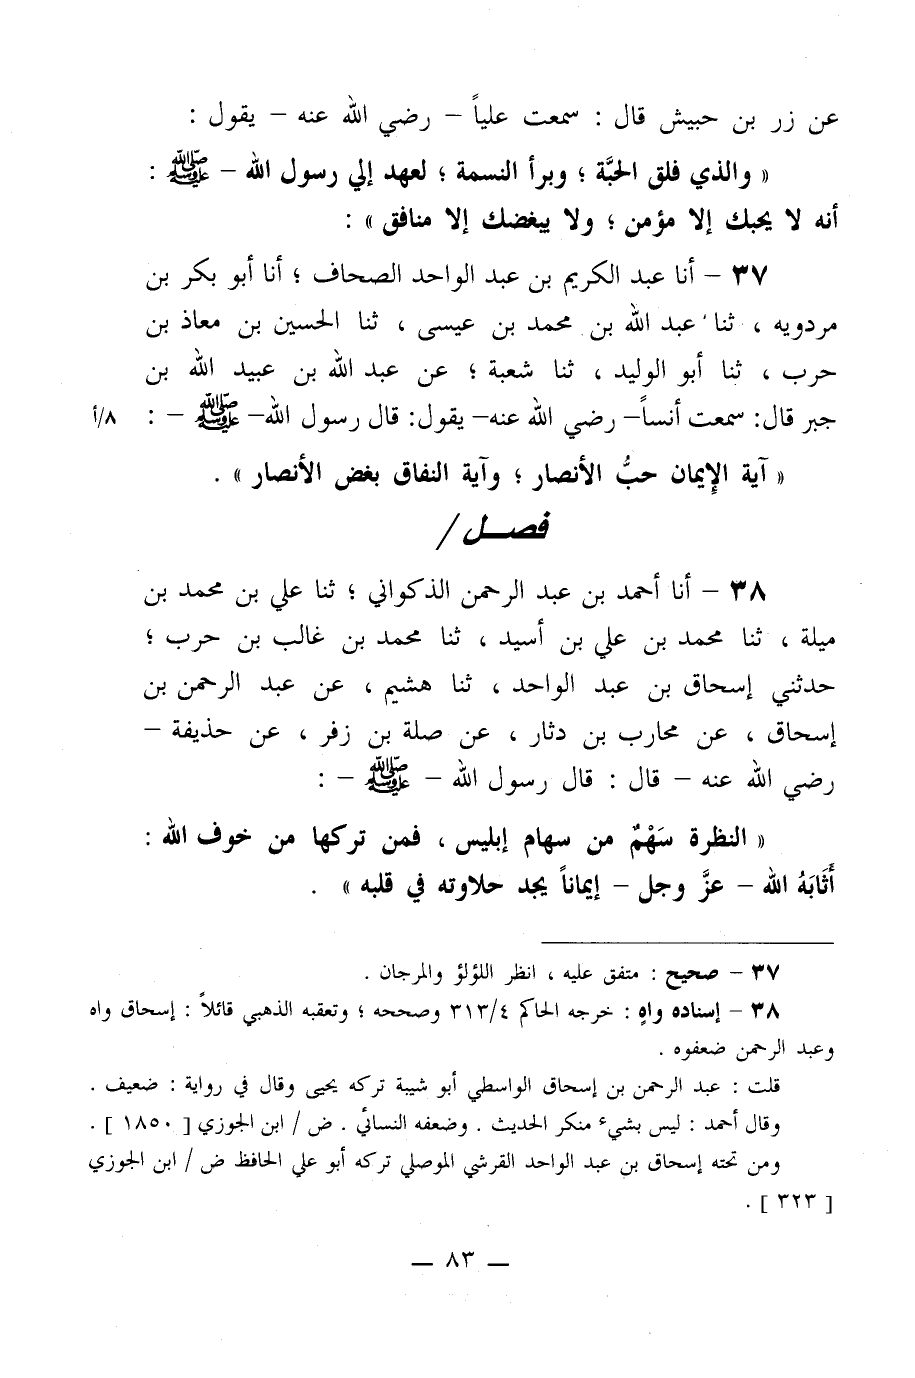 عن زر بن حبيش قال : سمعت علياً – رضي الله عنه – يقول :
« والذي فلق الحبَّة ؛ وبرأ النسمة ؛ لعهد إلي رسول الله – ﷺ :
أنه لا يحبك إلا مؤمن ؛ ولا يبغضك إلا منافق » :
٣٧ – أنا عبد الكريم بن عبد الواحد الصحاف ؛ أنا أبو بكر بن
مردويه ، ثنا عبد الله بن محمد بن عيسى ، ثنا الحسين بن معاذ بن
حرب ، ثنا أبو الوليد ، ثنا شعبة ؛ عن عبد الله بن عبيد الله بن
جبر قال: سمعت أنساً– رضي الله عنه– يقول: قال رسول الله– ﷺ – : ٨/أ
« آية الإيمان حبُّ الأنصار ؛ وآية النفاق بغض الأنصار » .
فصـــل /
٣٨ – أنا أحمد بن عبد الرحمن الذكواني ؛ ثنا علي بن محمد بن
ميلة ، ثنا محمد بن علي بن أسيد ، ثنا محمد بن غالب بن حرب ؛
حدثني إسحاق بن عبد الواحد ، ثنا هشيم ، عن عبد الرحمن بن
إسحاق ، عن محارب بن دثار ، عن صلة بن زفر ، عن حذيفة –
رضي الله عنه – قال : قال رسول الله – ﷺ – :
« النظرة سَهْمٌ من سهام إبليس ، فمن تركها من خوف الله :
أَثَابَهُ الله – عزَّ وجل – إيماناً يجد حلاوته في قلبه » .
٣٧ – صحيح : متفق عليه ، انظر اللؤلؤ والمرجان .
٣٨ – إسناده واهٍ : خرجه الحاكم ٣١٣/٤ وصححه ؛ وتعقبه الذهبي قائلاً : إسحاق واه
وعبد الرحمن ضعفوه .
قلت : عبد الرحمن بن إسحاق الواسطي أبو شيبة تركه يحيى وقال في رواية : ضعيف .
وقال أحمد : ليس بشيء منكر الحديث . وضعفه النسائي . ض / ابن الجوزي [ ١٨٥٠ ] .
ومن تحته إسحاق بن عبد الواحد القرشي الموصلي تركه أبو علي الحافظ ض / ابن الجوزي
[ ٣٢٣ ] .
— ٨٣ —